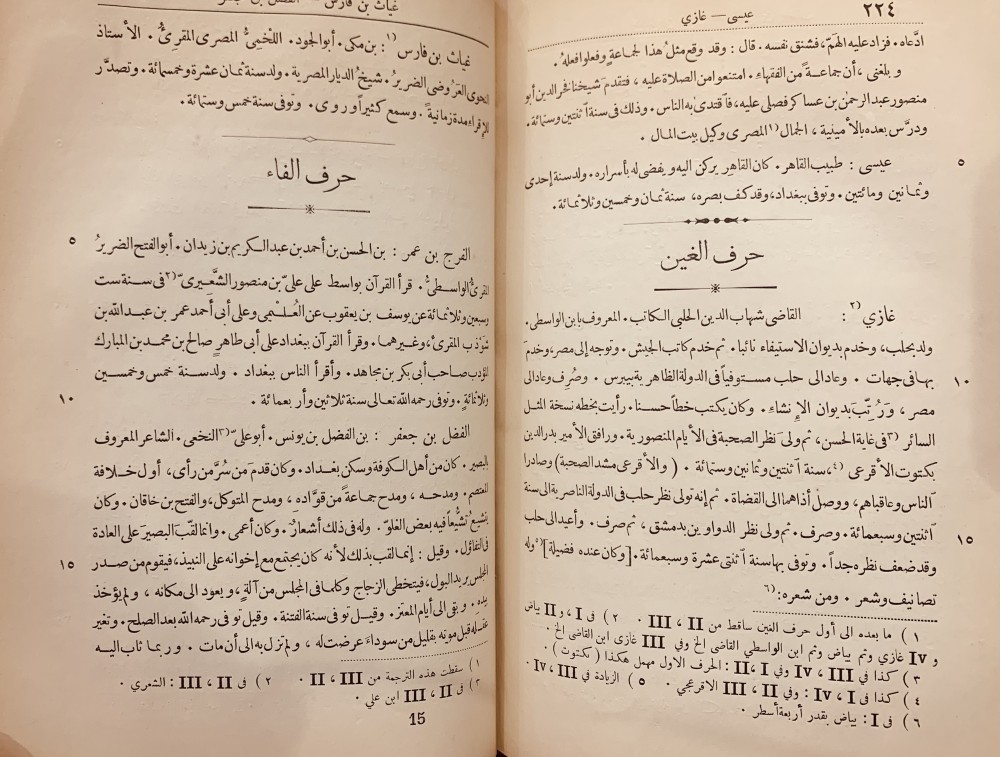 ٢٢٤
عيسى — غازي
ادّعاه. فزاد عليه الهمّ، فشنق نفسه. قال: وقد وقع مثل هذا لجماعةٍ وفعلوا فعله.
و بلغنى، أن جماعةً من الفقهاء. امتنعوا من الصلاة عليه، فتقدم شيخنا فخر الدين أبو
منصور عبد الرحمن بن عساكر فصلى عليه، فاقتدى به الناس. وذلك فى سنة اثنتين وستمائة.
ودرّس بعده بالأمينية، الجمال(١ المصرى وكيل بيت المال.
عيسى: طبيب القاهر. كان القاهر يركن اليه ويفضى له بأسراره. ولد سنة إحدى
٥
وثمانين ومائتين. وتوفى ببغداد، وقد كف بصره، سنة ثمان وخمسين وثلاثمائة.
حرف الغين
غازي(٢: القاضى شهاب الدين الحلبى الكاتب. المعروف بابن الواسطى.
ولد بحلب، وخدم بديوان الاستيفاء نائبا. ثم خدم كاتب الجيش. وتوجه إلى مصر، وخدم
بها فى جهات. وعاد الى حلب مستوفياً فى الدولة الظاهرية بيبرس. وصُرف وعاد الى
١٠
مصر، ورُتّب بديوان الإنشاء. وكان يكتب خطاً حسنا. رأيت بخطه نسخة المثل
السائر(٣ فى غاية الحسن، ثم ولى نظر الصحبة فى الأيام المنصورية. ورافق الأمير بدر الدين
بكتوت الأقرعى(٤، سنة اثنتين وثمانين وستمائة. (والأقرعى مشد الصحبة) وصادرا
الناس وعاقباهم، ووصل أذاهما الى القضاة. ثم إنه تولى نظر حلب فى الدولة الناصرية الى سنة
اثنتين وسبعمائة. وصرف. ثم ولى نظر الدواوين بدمشق، ثم صرف. وأعيد الى حلب
١٥
وقد ضعف نظره جداً. وتوفى بها سنة اثنتى عشرة وسبعمائة. [وكان عنده فضيلة](٥ وله
تصانيف وشعر. ومن شعره:(٦
١) ما بعده الى أول حرف الغين ساقط من II، III. ٢) فى I، و II بياض
و IV غازي وثم بياض وثم ابن الواسطي القاضى الخ وفي III غازى ابن القاضى الخ.
٣) كذا في III، IV وفي I، II: الحرف الاول مهمل هكذا (كتوت).
٤) كذا فى I، IV: وفي II، III الاقرعجي. ٥) الزيادة في III، IV.
٦) فى I: بياض بقدر أربعة أسطر.
غياث بن فارس
غياث بن فارس(١: بن مكى. أبو الجود. اللخمىُّ المصرى المقرئُّ. الأستاذ
النحوى العَرُوضى الضريرُ. شيخُ الديار المصرية. ولد سنة ثمان عشرة وخمسمائة. وتصدَّر
للإقراء مدة زمانيةً. وسمع كثيراً وروى. وتوفى سنة خمس وستمائة.
حرف الفاء
الفرج بن عمر: بن الحسن بن أحمد بن عبد الكريم بن زيدان. أبو الفتح الضريرُ
٥
المقرئُ الواسطىُّ. قرأ القرآن بواسط على علىّ بن منصور الشَّعِيرىّ(٢ فى سنة ست
وسبعين وثلاثمائة عن يوسف بن يعقوب عن العُلَيمى وعلى أبى أحمد عمر بن عبد الله بن
شوذب المقرئ، وغيرهما. وقرأ القرآن ببغداد على أبى طاهرٍ صالح بن محمد بن المبارك
المؤدب صاحب أبى بكر بن مجاهد. وأقرأ الناس ببغداد. ولد سنة خمس وخمسين
وثلاثمائةٍ. وتوفى رحمه الله تعالى سنة ثلاثين وأربعمائة.
١٠
الفضل بن جعفر: بن الفضل بن يونس. أبو علىّ(٣ النخعى. الشاعر المعروف
بالبصير. كان من أهل الكوفة وسكن بغداد. وكان قدم من سُرَّ من رأى، أول خلافة
المعتصم. ومدحه، ومدح جماعةً من قوّاده، ومدح المتوكل، والفتح بن خاقان. وكان
يتشيع تشيُّعاً فيه بعض الغلوّ. وله فى ذلك أشعارٌ. وكان أعمى. وانما لقّب البصيرَ على العادة
فى التفاؤل. وقيل: إنما لقب بذلك لأنه كان يجتمع مع إخوانه على النبيذ، فيقوم من صدر
١٥
المجلس يريد البول، فيتخطى الزجاج وكلما فى المجلس من آلةٍ، ويعود الى مكانه، ولم يؤخذ
بيده. وبقى الى أيام المعتز. وقيل توفى سنة الفتنة. وقيل توفى رحمه الله بعد الصلح. وتغير
عقله قبل موته بقليل من سوداءَ عرضت له، ولم تزل به الى أن مات. وربما ثاب اليه
١) سقطت هذه الترجمة من II، III. ٢) فى II، III: الشعري.
٣) فى II، III ابن علي.
15